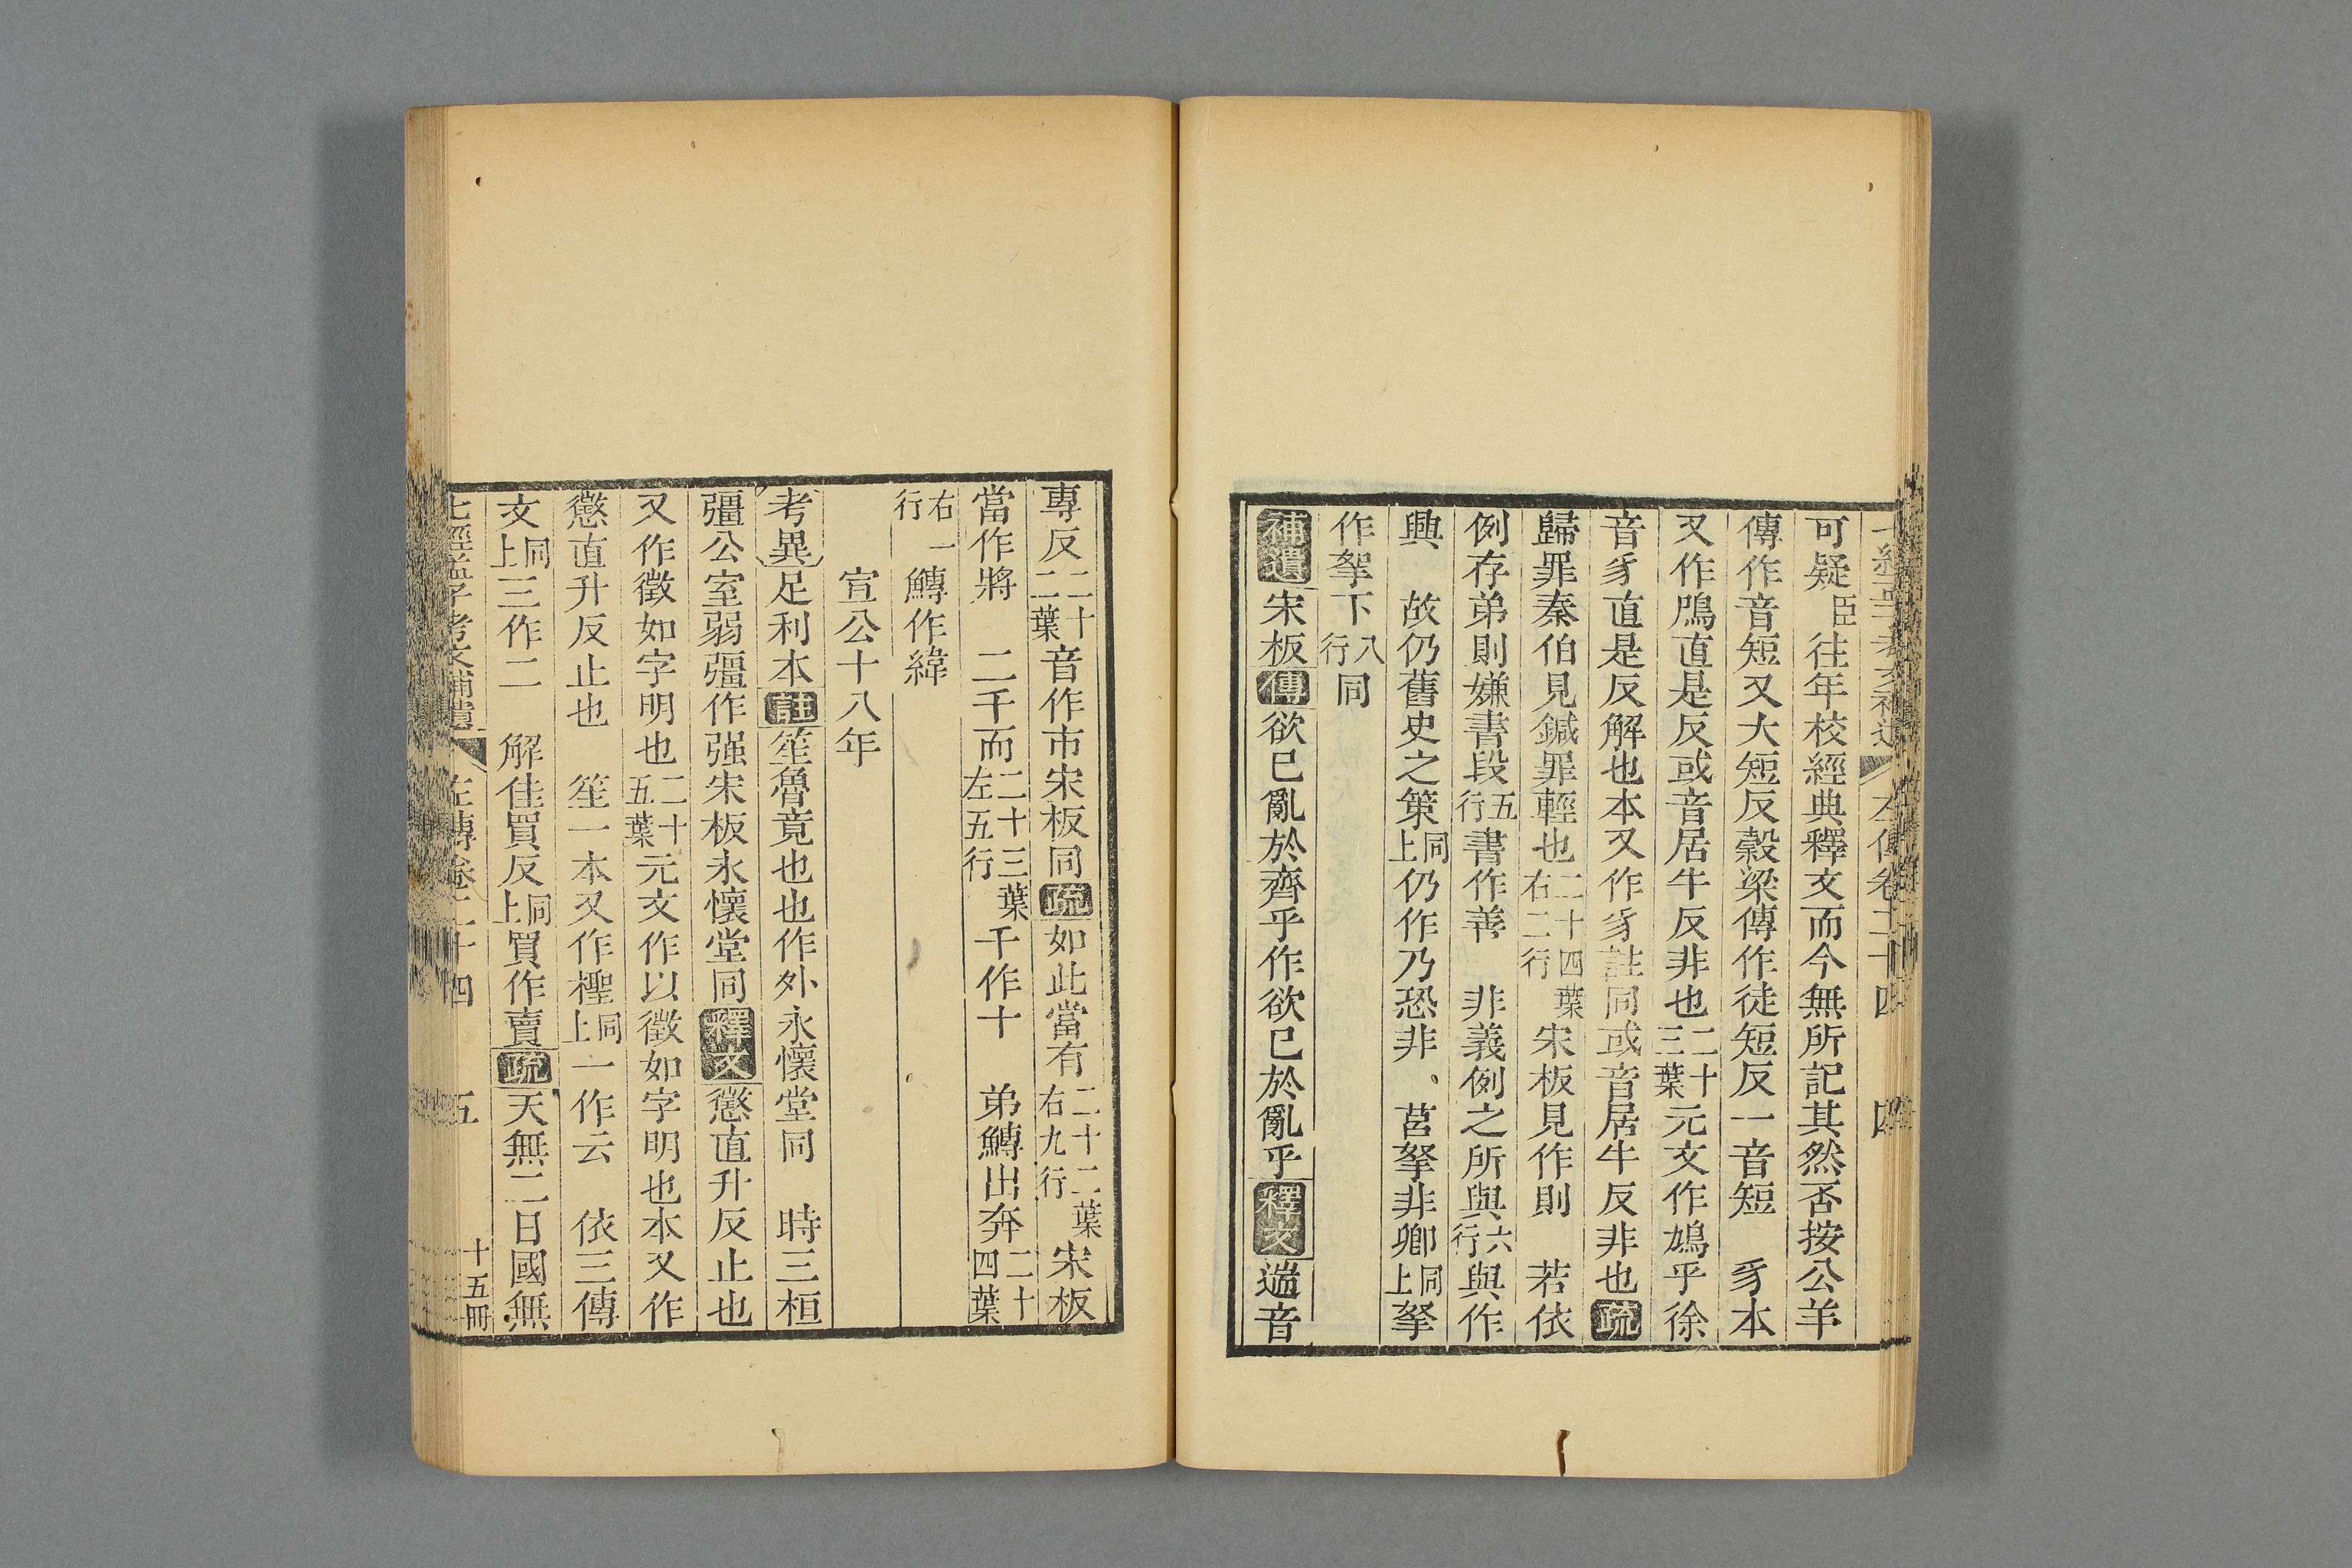 可疑臣往年校經典釋文而今無所記其然否按公羊
傳作音短又大短反穀梁傳作徒短反一音短　豸本
又作鳲直是反或音居牛反非也二十三葉元文作鳩乎徐
音豸直是反解也本又作豸註同或音居牛反非也疏
歸罪秦伯見鍼罪輕也二十四葉右二行宋板見作則　若依
例存弟則嫌書段五行書作善　非義例之所與六行與作
興　故仍舊史之策同上仍作乃恐非、莒拏非卿同上拏
作挐下八行同
補遺宋板傳欲已亂於齊乎作欲已於亂乎釋文遄音
專反二十二葉音作市宋板同疏如此當有二十二葉右九行宋板
當作將　二千而二十三葉左五行千作十　弟鱄出奔二十四葉
右一行鱄作緯
宣公十八年
考異足利本註笙魯竟也也作外永懷堂同　時三桓
彊公室弱彊作强宋板永懷堂同釋文懲直升反止也
又作徵如字明也二十五葉元文作以徵如字明也本又作
懲直升反止也　笙一本又作檉同上一作云　依三傳
文同上三作二　解佳買反同上買作賣疏天無二日國無
七經孟子考文補遺　左傳卷二十四　五　十五冊